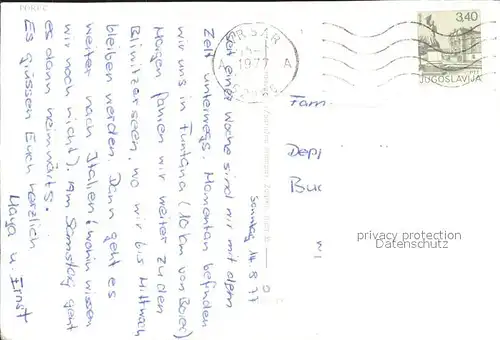 Sonntag, 14.8.77
Seit einer Woche sind wir mit dem
Zelt unterwegs. Momentan befinden
wir uns in Funtana (10 km von Porec)
Morgen fahren wir weiter zu den
Plitvitzerseen, wo wir bis Mittwoch
bleiben werden. Dann geht es
weiter nach Italien (wohin wissen
wir noch nicht). Am Samstag geht
es dann heimwärts.
Es grüssen Euch herzlich
Maya u. Ernst
VRSAR
1977
A A
3,40
JUGOSLAVIJA
Fam
Dep
Buc
privacy protection
Datenschutz